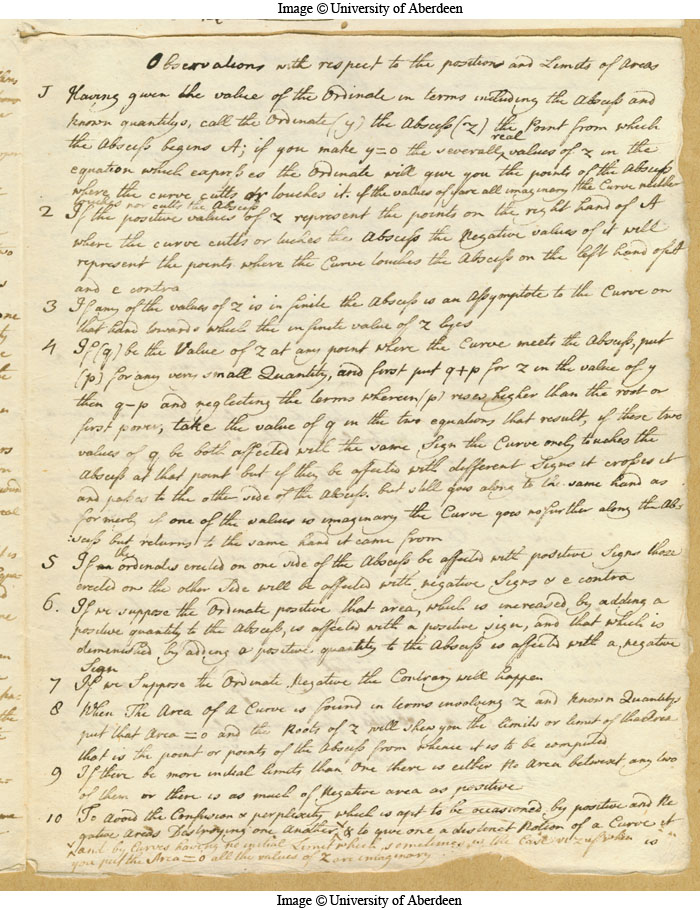 Image © University of Aberdeen
Observations with respect to the positions and Limits of Areas
1 Having given the value of the Ordinate in terms including the Abscess and
known quantitys, call the Ordinate (y) the Abscess (z) the Point from which
the Abscess begins A; if you make y=0 the severall real values of z in the
equation which expresses the Ordinate will give you the points of the Abscess
where the curve cutts or touches it: if the values of z are all imaginary the Curve neither
touches nor cutts the Abscess
2 If the positive values of z represent the points on the right hand of A
where the curve cutts or tuches the Abscess the Negative values of it will
represent the points where the Curve touches the Abscess on the left hand of A
and e contra
3 If any of the values of z is infinite the Abscess is an Assymptote to the Curve on
that hand towards which the infinite value of z lyes
4 If (q) be the Value of z at any point where the Curve meets the Abscess, put
(p) for any very small Quantity, and first put q+p for z in the value of y
then q-p and neglecting the terms wherein (p) rises higher than the root or
first power, take the value of q in the two equations that result, if these two
values of q be both affected with the same Sign the Curve onely touches the
Abscess at that point but if they be affected with different Signs it crosses it
and passes to the other side of the Abscess. but still goes along to the same hand as
formerly if one of the values is imaginary the Curve goes no further along the Ab-
:scess but returns to the same hand it came from
5 If the ordinates erected on one side of the Abscess be affected with positive Signs those
erected on the other Side will be affected with negative Signs & e contra
6. If we suppose the Ordinate positive that area, which is increased by adding a
positive quantity to the Abscess, is affected with a positive sign, and that which is
deminished by adding a positive quantity to the Abscess is affected with a negative
Sign
7 If we Suppose the Ordinate Negative the Contrary will happen
8 When The Area Of a Curve is found in terms involving z and known Quantitys
put that Area =0 and the Roots of z will shew you the limits or limit of that Area
that is the point or points of the Abscess from whence it is to be computed
9 If there be more initial limits than One there is either No Area betwixt any two
of them or there is as much of Negative area as positive
10 To Avoid the Confusion & perplexity which is apt to be occasioned by positive and Ne
gative Areas Destroying one Another, & to give one a distinct Notion of a Curve it
and by Curves having no initial Limit which sometimes is the Case viz when is
you put the Area =0 all the values of z are imaginary
Image © University of Aberdeen